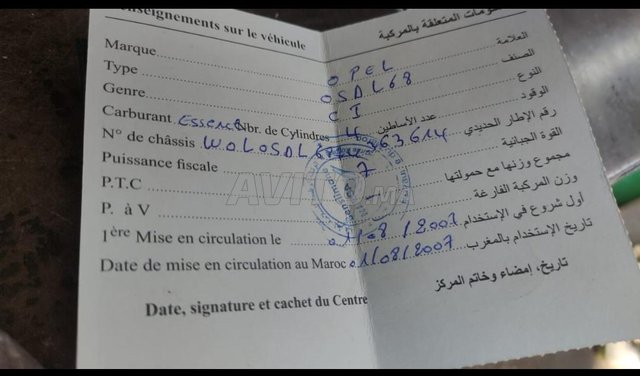 Renseignements sur le véhicule معلومات المتعلقة بالمركبة
Marque OPEL العلامة
Type OSDL68 الصنف
Genre CI النوع
Carburant Essence Nbr. de Cylindres 4 عدد الأساطين الوقود
N° de châssis رقم الإطار الحديدي
Puissance fiscale 7 القوة الجبائية
P.T.C مجموع وزنها مع حمولتها
P. à V وزن المركبة الفارغة
1ère Mise en circulation le 01/08/2007 أول شروع في الإستخدام
Date de mise en circulation au Maroc 01/08/2007 تاريخ الإستخدام بالمغرب
Date, signature et cachet du Centre تاريخ، إمضاء وخاتم المركز
AVITO.MA